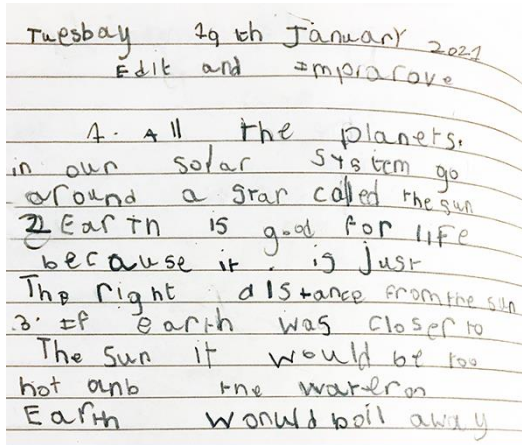 Tuesbay 19th January 2021
Edit and Improrove
1. All the planets.
in our solar system go
around a star called the sun
2 Earth is good for life
because it. is just
The right distance from the sun
3. If earth was closer to
The Sun it would be too
hot anb the water on
Earth wonuld boil away